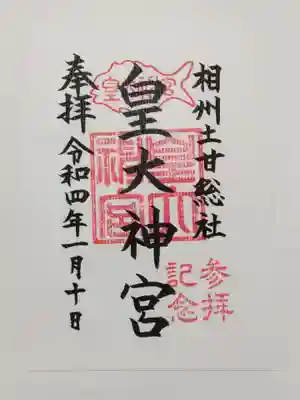 相州土甘総社
皇大神宮
奉拝
令和四年一月十日
参拝
記念